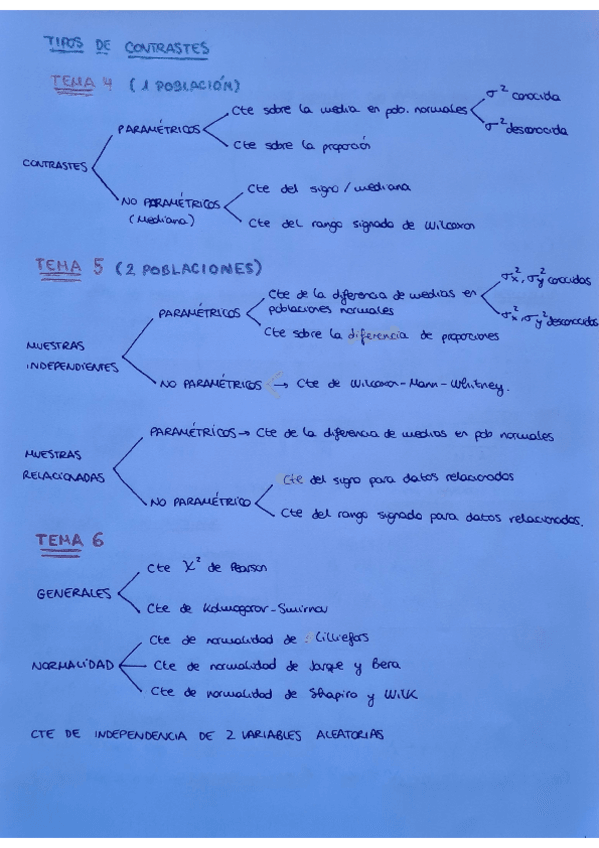 TIPOS DE CONTRASTES
TEMA 4 (1 POBLACIÓN)
CONTRASTES
PARAMÉTRICOS
Cte sobre la media en pob. normales
σ² conocida
σ² desconocida
Cte sobre la proporción
NO PARAMÉTRICOS
(Mediana)
Cte del signo / mediana
Cte del rango signado de Wilcoxon
TEMA 5 (2 POBLACIONES)
MUESTRAS
INDEPENDIENTES
PARAMÉTRICOS
Cte de la diferencia de medias en
poblaciones normales
σx², σy² conocidas
σx², σy² desconocidas
Cte sobre la diferencia de proporciones
NO PARAMÉTRICOS → Cte de Wilcoxon-Mann-Whitney.
MUESTRAS
RELACIONADAS
PARAMÉTRICOS → Cte de la diferencia de medias en pob normales
NO PARAMÉTRICO
Cte del signo para datos relacionados
Cte del rango signado para datos relacionados.
TEMA 6
GENERALES
Cte χ² de Pearson
Cte de Kolmogorov-Smirnov
NORMALIDAD
Cte de normalidad de Lilliefors
Cte de normalidad de Jarque y Bera
Cte de normalidad de Shapiro y Wilk
CTE DE INDEPENDENCIA DE 2 VARIABLES ALEATORIAS